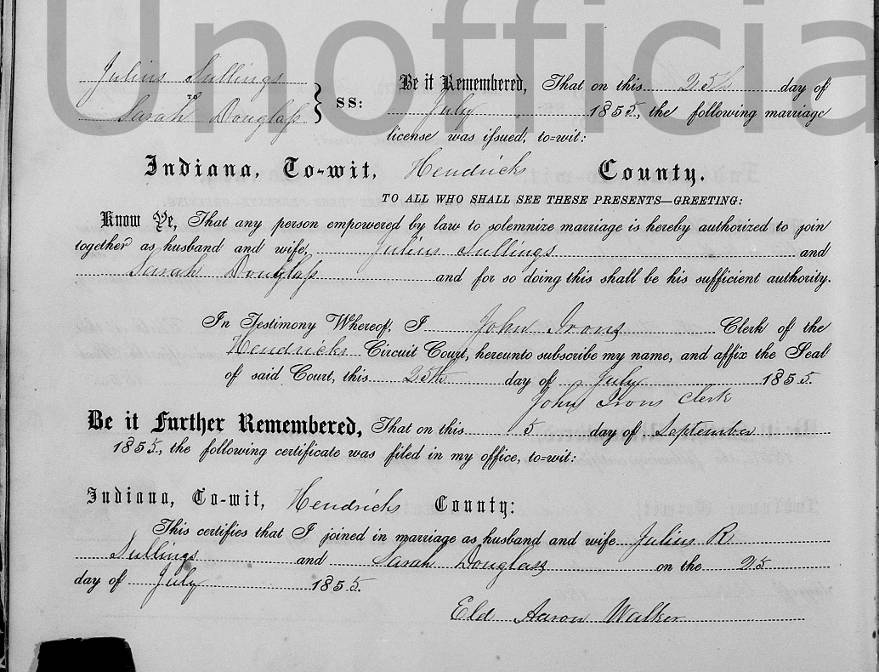 Unofficia
Julius Nullings
to
Sarah Douglass
} SS:
Be it Remembered, That on this 25th day of
July 1855, the following marriage
license was issued, to=wit:
Indiana, To=wit, Hendricks County.
TO ALL WHO SHALL SEE THESE PRESENTS—GREETING:
Know Ye, That any person empowered by law to solemnize marriage is hereby authorized to join
together as husband and wife, Julius Nullings and
Sarah Douglass and for so doing this shall be his sufficient authority.
In Testimony Whereof, I John Irons Clerk of the
Hendricks Circuit Court, hereunto subscribe my name, and affix the Seal
of said Court, this 25th day of July 1855.
John Irons Clerk
Be it Further Remembered, That on this 5 day of September
1855, the following certificate was filed in my office, to=wit:
Indiana, To=wit, Hendricks County:
This certifies that I joined in marriage as husband and wife Julius R
Nullings and Sarah Douglass on the 25
day of July 1855.
Eld Aaron Walker